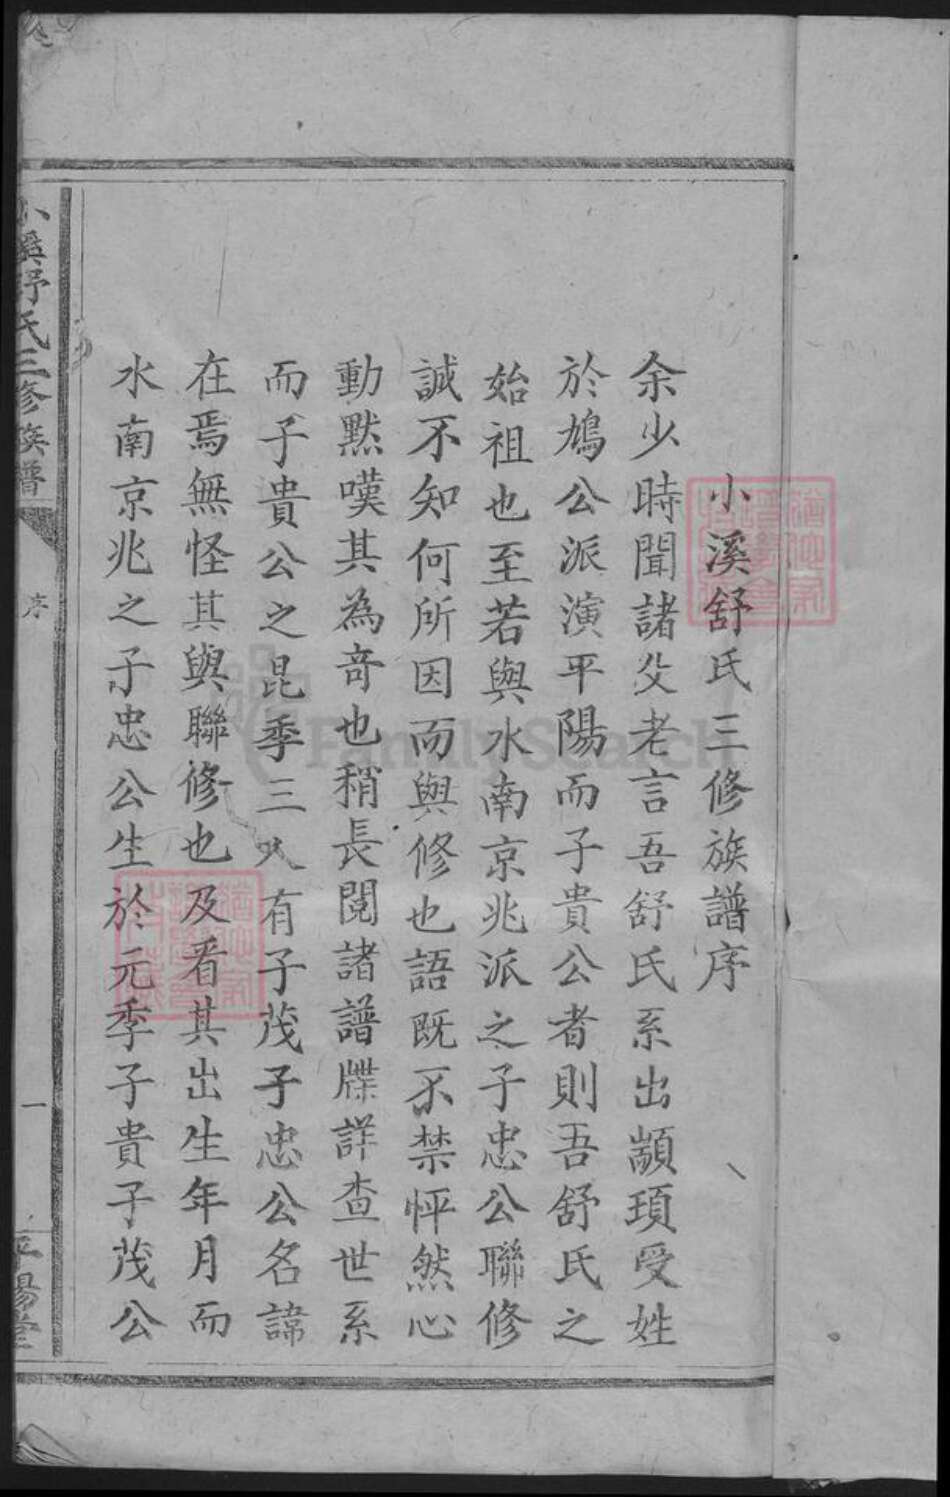 小溪舒氏三修族譜序
余少時聞諸父老言吾舒氏系出顓頊受姓
於鳩公派演平陽而子貴公者則吾舒氏之
始祖也至若與水南京兆派之子忠公聯修
誠不知何所因而與修也語既不禁怦然心
動默嘆其為竒也稍長閱諸譜牒詳查世系
而子貴公之昆季三人有子茂子忠公名諱
在焉無怪其與聯修也及看其出生年月而
水南京兆之子忠公生於元季子貴子茂公
小溪舒氏三修族譜
序
一
平陽堂
FamilySearch